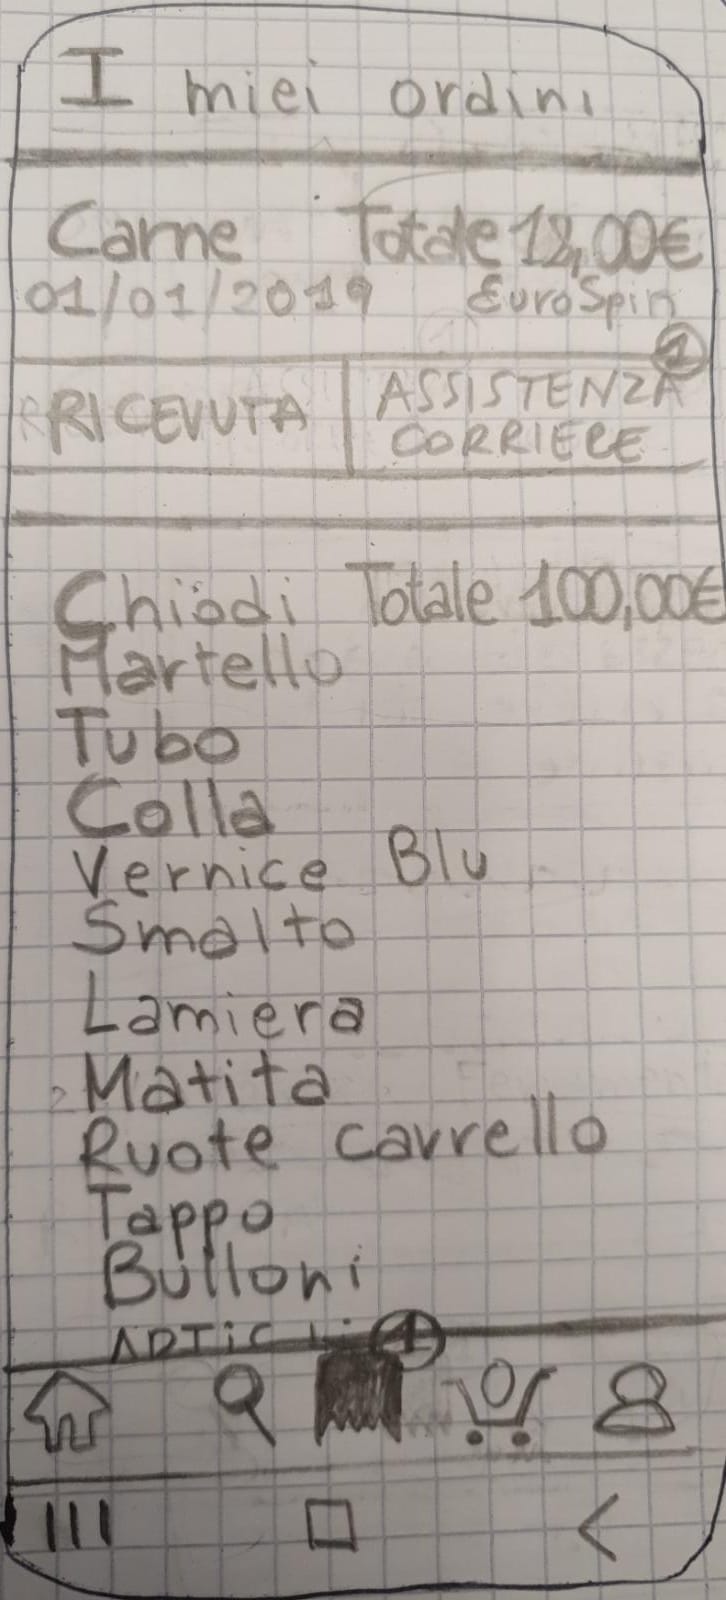 I miei ordini
Carne Totale 12,00€
01/01/2019 EuroSpin
1
RICEVUTA ASSISTENZA
CORRIERE
Chiodi Totale 100,00€
Martello
Tubo
Colla
Vernice Blu
Smalto
Lamiera
Matita
Ruote carrello
Tappo
Bulloni
1